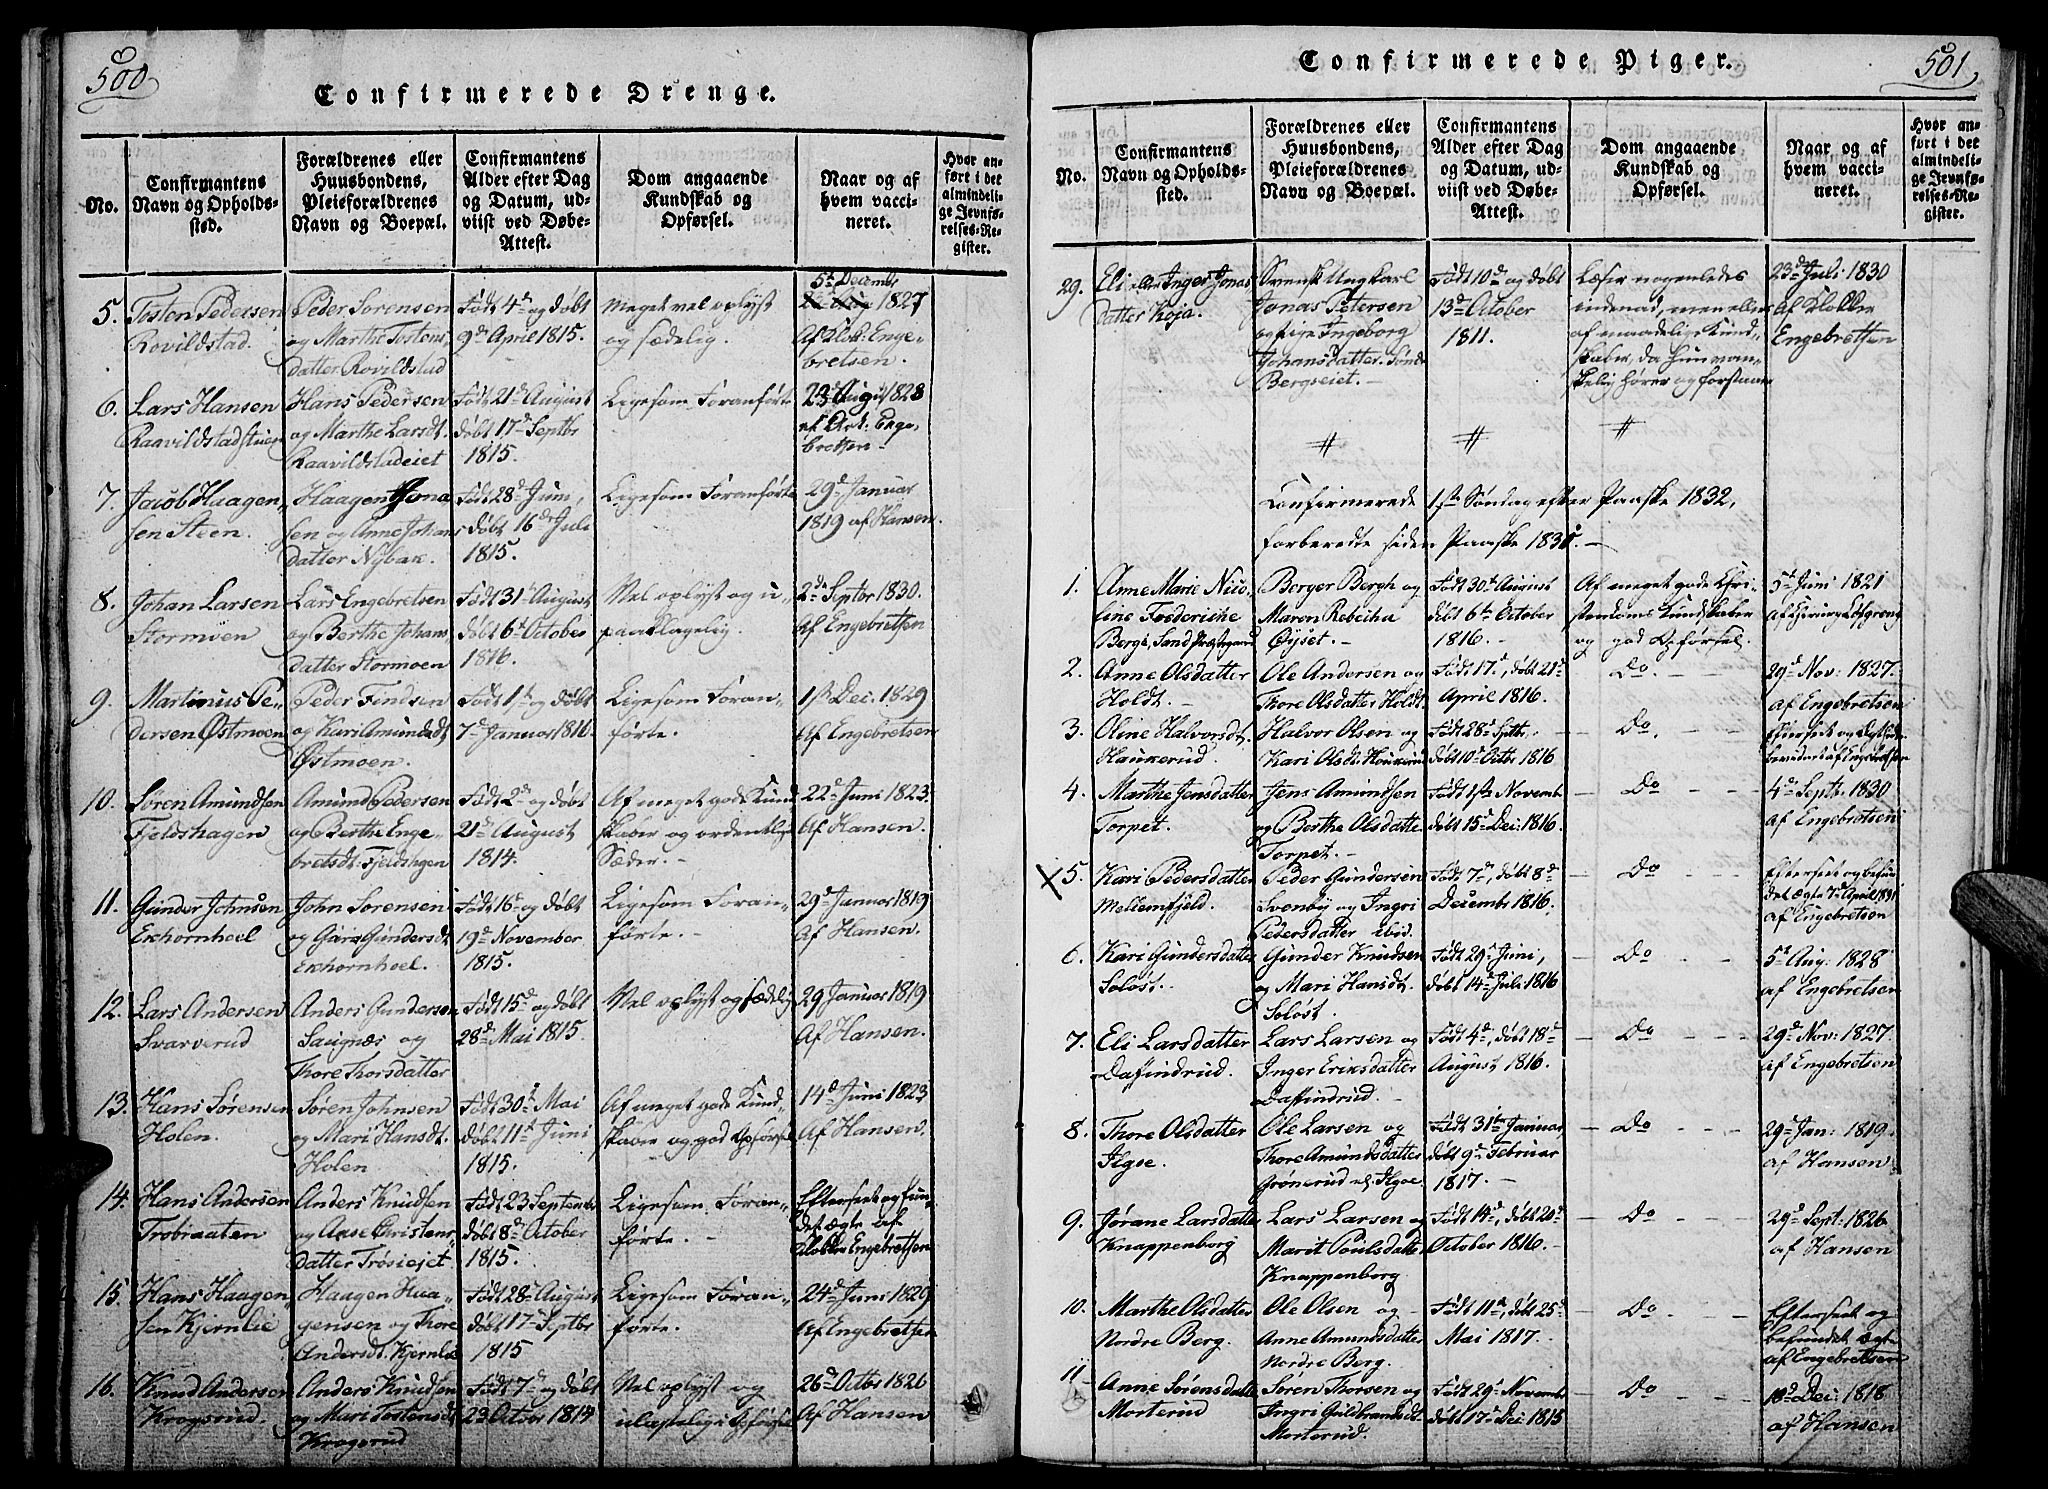 500
Confirmerede Drenge.
No.
Confirmantens Navn og Opholdssted.
Forældrenes eller Huusbondens, Pleieforældrenes Navn og Boepæl.
Confirmantens Alder efter Dag og Datum, udviist ved Døbe-Attest.
Dom angaaende Kundskab og Opførsel.
Naar og af hvem vaccineret.
Hvor anført i det almindelige Jevnførelses-Register.
5.
Tosten Pedersen
Rovildstad.
Peder Sørensen
og Marthe Tostens
datter Rovildstad
Født 4de og døbt
9de April 1815.
Meget vel oplyst
og sædelig.
5te Decembr
1827
Af Klok: Enge-
bretsen.
6.
Lars Hansen
Raavildstadstuen
Hans Pedersen
og Marthe Larsdt.
Raavildstadeiet
Født 21de August
døbt 17de Septbr
1815.
Ligesom Foranførte
23de Augu 1828
af Engebretsen
7.
Jacob Haagen-
sen Steen.
Haagen Jona
sen og Anne Johans
datter Nybak.
Født 28de Juni,
døbt 16de Juli
1815.
Ligesom Foranførte
29de Januar
1819 af Hansen.
8.
Johan Larsen
Stormoen
Lars Engebretsen
og Berthe Johans
datter Stormoen
Født 31te August
døbt 6te October
1816.
Vel oplyst og u-
paaklagelig.
2de Septbr 1830.
Af Engebretsen
9.
Martinus Pe-
dersen Østmoen
Peder Findsen
og Kari Amundsdt
Østmoen.
Født 1te og døbt
7de Januar 1816.
Ligesom Foran-
førte.
1ste Dec. 1829
Af Engebretsen
10.
Søren Amundsen
Fjeldshagen
Amund Pedersen
og Berthe Enge-
bretsdt: Fjeldshgen
Født 2de og døbt
21de August
1814.
Af meget gode Kund
skaber og ordentlige
Sæder.
22de Juni 1823.
Af Hansen.
11.
Gunder Johnsen
Ekhornhoel
John Sørensen
og Guri Gundersdt
Ekhornhoel.
Født 16de og døbt
19de November
1815.
Ligesom Foran-
førte.
29de Januar 1819
Af Hansen.
12.
Lars Andersen
Svarverud
Anders Gundersen
Saugnæs og
Thore Thorsdatter
Født 15de og døbt
28de Mai 1815.
Vel oplyst og sædelig
29 Januar 1819
Af Hansen.
13.
Hans Sørensen
Holen.
Søren Johnsen
og Mari Hansdt.
Holen
Født 30te Mai
døbt 11te Juni
1815.
Af meget gode Kund
skaber og god Opførsel
14de Juni 1823
Af Hansen.
14.
Hans Andersen
Trobraaten
Anders Knudsen
og Anse Christens
datter Trøsiejet
Født 23 September
døbt 8de October
1815.
Ligesom Foran-
førte.
Efterseet og fun-
det ægte af
Klokker Engebretsen
15.
Hans Haagen-
sen Kjernlie
Haagen Haa-
gensen og Thore
Andersdt. Kjernlie
Født 28de August
døbt 17de Septbr
1815
Ligesom Foran-
førte.
24de Juni 1829
Af Engebretsen
16.
Knud Andersen
Krogsrud.
Anders Knudsen
og Mari Tostensdt
Krogsrud
Født 7de og døbt
23 Octbr 1814
Vel oplyst og
ulastelig i Opførsel
26de Octbr 1826
Af Hansen
501
Confirmerede Piger.
No.
Confirmantens Navn og Opholdssted.
Forældrenes eller Huusbondens, Pleieforældrenes Navn og Boepæl.
Confirmantens Alder efter Dag og Datum, udviist ved Døbe-Attest.
Dom angaaende Kundskab og Opførsel.
Naar og af hvem vaccineret.
Hvor anført i det almindelige Jevnførelses-Register.
29.
Eli eller Inger Jonas
datter Koja.
Svensk Ungkarl
Jonas Petersen
og Pige Ingeborg
Johansdatter. Søndr
Bergseiet.
Født 10de og døbt
13de October
1811.
Læser nogenledes
indenad, men eller
af maadelige Kund-
skaber, da hun van-
skelig hører og forstaaer
23de Juli 1830
Af Klokker
Engebretsen
Confirmerede 1ste Søndag efter Paaske 1832,
forberedte siden Paaske 1831.
1.
Anne Marie Nico-
line Frederiche
Bergh, Sand Præstegaard
Berger Bergh og
Maren Rebecha
Øyset.
Født 30te August
døbt 6te October
1816.
Af meget gode Chri-
stendoms Kundskaber
og god Opførsel.
5te Juni 1821
af Chirurg Løfgreng
2.
Anne Olsdatter
Holdt.
Ole Andersen og
Thore Olsdatter Holdt.
Født 17de, døbt 21de
April 1816.
Do
29de Nov: 1827.
af Engebretsen
3.
Oline Halvorsdt.
Haukerud.
Halvor Olsen og
Kari Olsdt. Houkerud
Født 28de Septbr.
døbt 10de Octbr 1816
Do
Efterseet og ægte be-
fundet af Engebretsen
4.
Marthe Jensdatter
Torpet.
Jens Amundsen
og Berthe Olsdatter
Torpet.
Født 1ste Novembr
døbt 15de Dec: 1816.
Do
4de Septbr. 1830
af Engebretsen
5.
Kari Pedersdatter
Mellemfjeld.
Peder Gundersen
Svenby og Ingri
Pedersdatter ibid.
Født 7de, døbt 8de
Decembr 1816.
Do
Efterseet og befun
det ægte 7de April 1831
af Engebretsen
6.
Kari Gundersdatter
Soløst.
Gunder Knudsen
og Mari Hansdt.
Soløst.
Født 29de Juni,
døbt 14de Juli 1816
Do
5te Aug: 1828
af Engebretsen
7.
Eli Larsdatter
Dafindrud.
Lars Larsen og
Inger Eriksdatter
Daffindrud.
Født 4de, døbt 18de
August 1816.
Do
29de Nov: 1827.
af Engebretsen
8.
Thore Olsdatter
Ilgse.
Ole Larsen og
Thore Amundsdatter
Grønerud el. Ilgse.
Født 31te Januar,
døbt 9de Februar
1817.
Do
29de Jan: 1819.
af Hansen
9.
Jørane Larsdatter
Knappenborg
Lars Larsen og
Marit Poulsdatter
Knappenborg
Født 14de, døbt 20de
October 1816.
Do
29de Sept: 1826
af Hansen
10.
Marthe Olsdatter
Nordre Berg.
Ole Olsen og
Anne Amundsdatter
Nordre Berg.
Født 11te, døbt 25de
Mai 1817.
Do
Efterseet og
befundet ægte
af Engebretsen
11
Anne Sørensdatter
Morterud
Søren Thorsen og
Ingri Guldbrandsdt.
Morterud.
Født 29de Novembr
døbt 17de Dec: 1815
Do
10de Dec: 1818
af Hansen